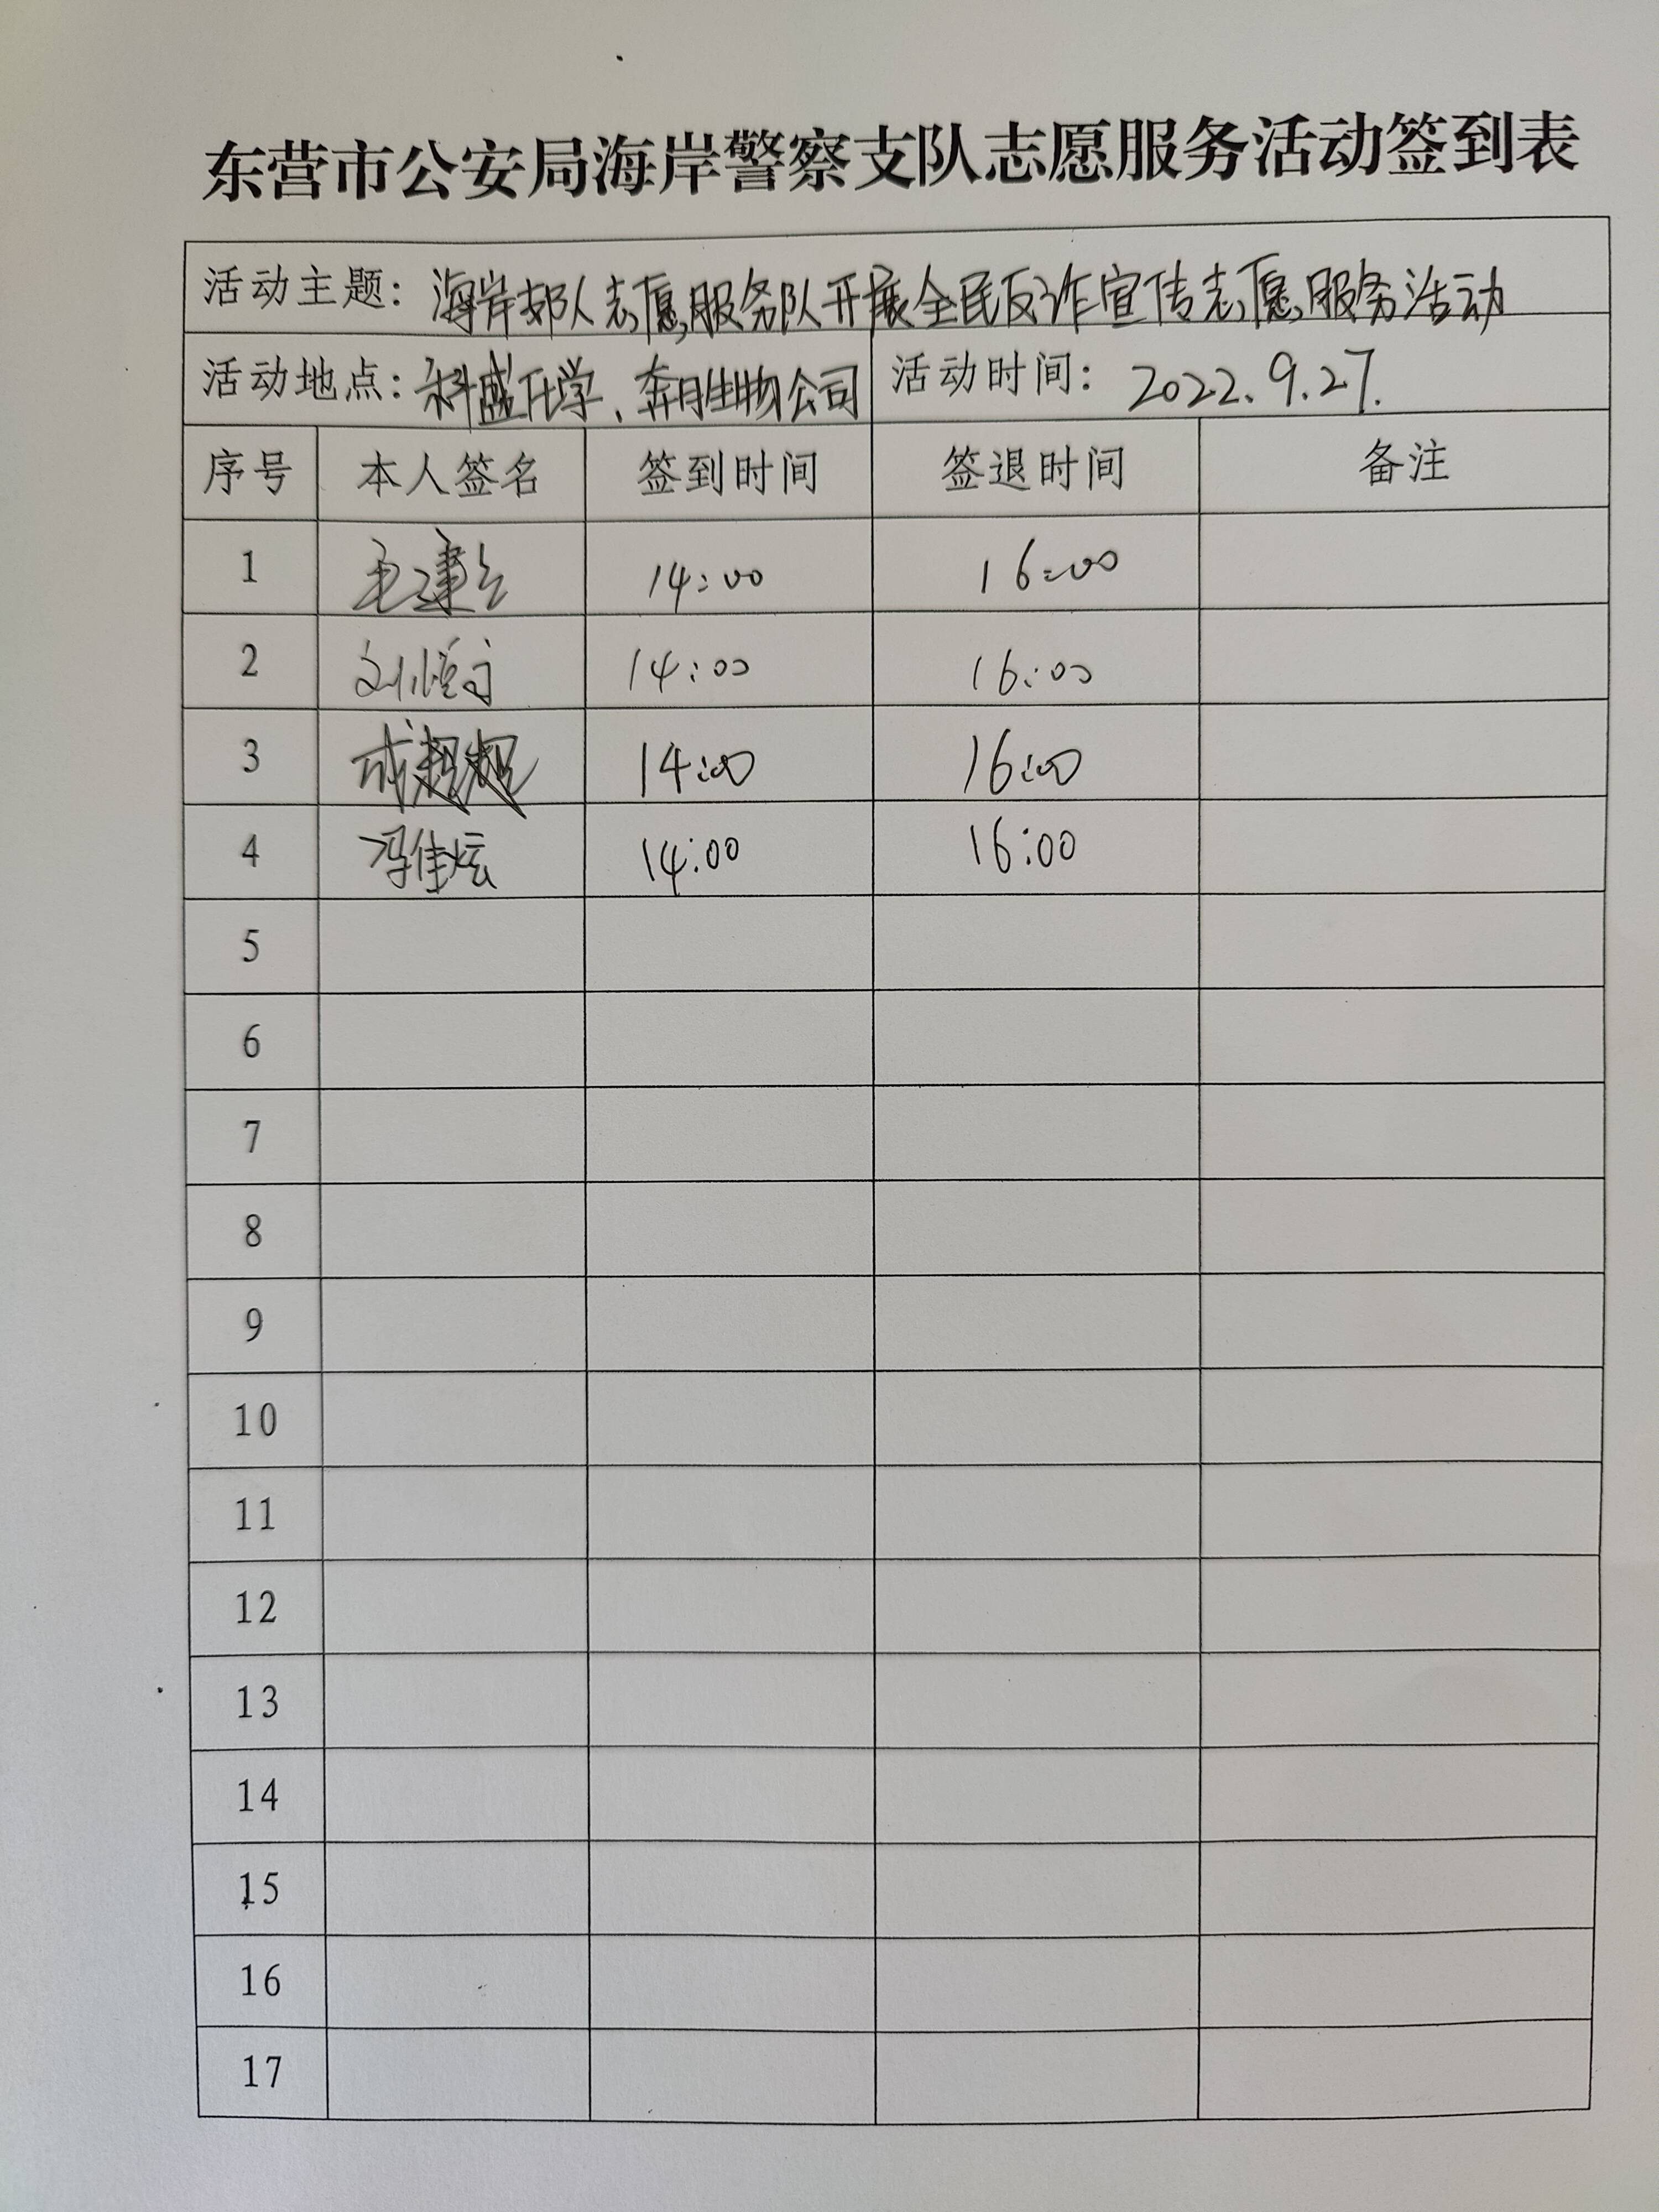 东营市公安局海岸警察支队志愿服务活动签到表
活动主题：海岸部队志愿服务队开展全民反诈宣传志愿服务活动
活动地点：科盛化学、奔月生物公司 活动时间：2022.9.27.
序号 本人签名 签到时间 签退时间 备注
1 毛建 14:00 16:00
2 刘 14:00 16:00
3 成超超 14:00 16:00
4 冯佳炫 14:00 16:00
5
6
7
8
9
10
11
12
13
14
15
16
17